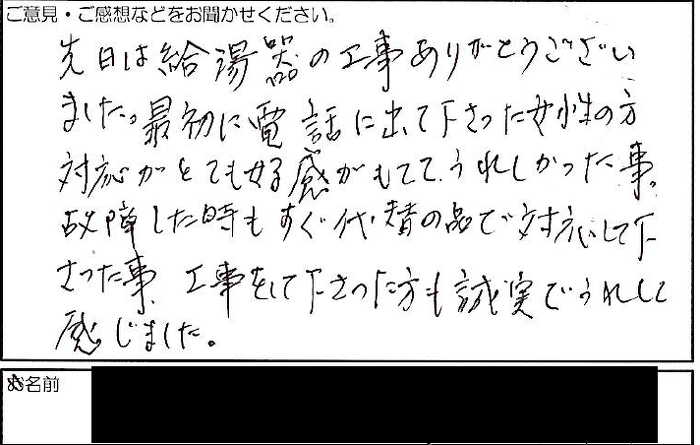 ご意見・ご感想などをお聞かせください。
先日は給湯器の工事ありがとうござい
ました。最初に電話に出て下さった女性の方
対応がとても好感がもてて、うれしかった事。
故障した時もすぐ代替の品で対応して下
さった事、工事をして下さった方も誠実でうれしく
感じました。
お名前